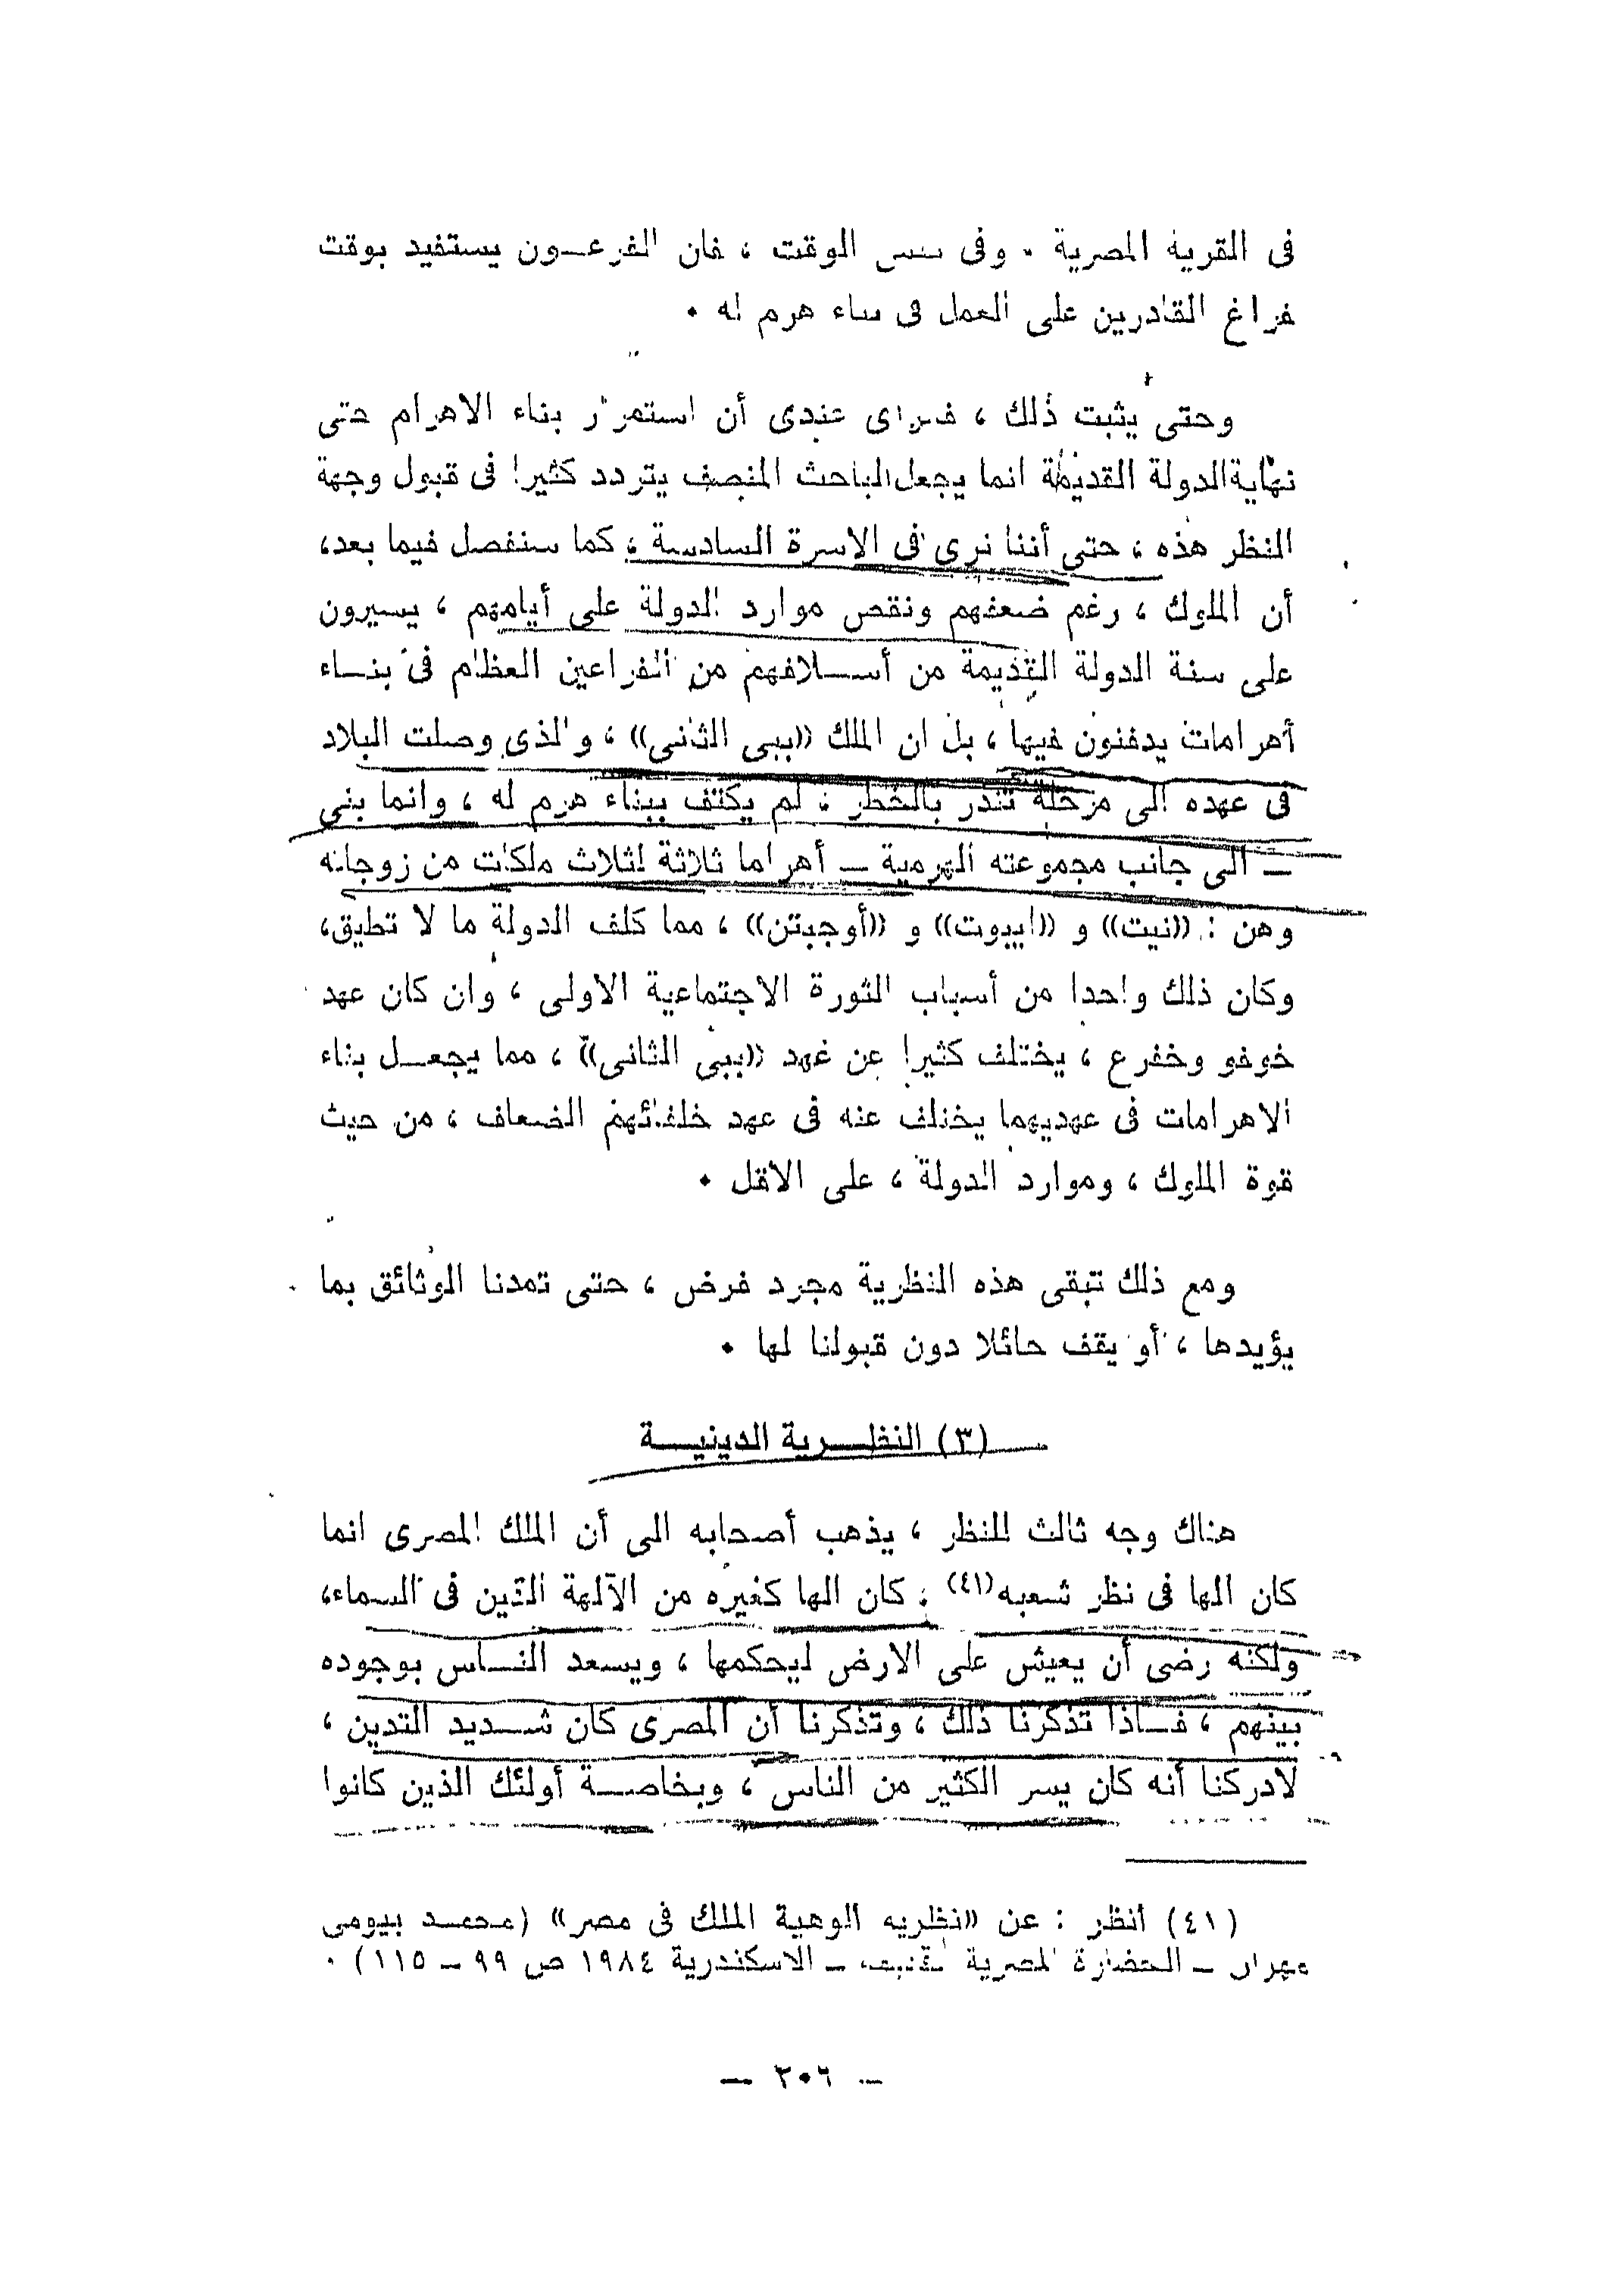 فى القرية المصرية . وفى نفس الوقت ، فان الفرعـــون يستفيد بوقت
فراغ القادرين على العمل فى بناء هرم له .
وحتى يثبت ذلك ، فـراى عندى أن استمرار بناء الاهرام حتى
نهاية الدولة القديمة انما يجعل الباحث المنصف يتردد كثيرا فى قبول وجهة
النظر هذه ، حتى أننا نرى فى الاسرة السادسة ، كما سنفصل فيما بعد،
أن الملوك ، رغم ضعفهم ونقص موارد الدولة على أيامهم ، يسيرون
على سنة الدولة القديمة من أســلافهم من الفراعين العظام فى بنــاء
أهرامات يدفنون فيها ، بل ان الملك ((ببى الثانى)) ، والذى وصلت البلاد
فى عهده الى مرحلة تنذر بالخطر ، لم يكتف ببناء هرم له ، وانما بنى
ــ الى جانب مجموعته الهرمية ــ أهراما ثلاثة لثلاث ملكات من زوجاته
وهن : ((نيت)) و ((ابيوت)) و ((أوجبتن)) ، مما كلف الدولة ما لا تطيق،
وكان ذلك واحدا من أسباب الثورة الاجتماعية الاولى ، وان كان عهد
خوفو وخفرع ، يختلف كثيرا عن عهد ((ببى الثانى)) ، مما يجعــل بناء
الاهرامات فى عهديهما يختلف عنه فى عهد خلفائهم الضعاف ، من حيث
قوة الملوك ، وموارد الدولة ، على الاقل .
ومع ذلك تبقى هذه النظرية مجرد فرض ، حتى تمدنا الوثائق بما
يؤيدها ، أو يقف حائلا دون قبولنا لها .
(٣) النظــرية الدينيــة
هناك وجه ثالث للنظر ، يذهب أصحابه الى أن الملك المصرى انما
كان الها فى نظر شعبه(٤١) ، كان الها كغيره من الآلهة الذين فى السماء،
ولكنه رضى أن يعيش على الارض ليحكمها ، ويسعد النــاس بوجوده
بينهم ، فــاذا تذكرنا ذلك ، وتذكرنا أن المصرى كان شــديد التدين ،
لادركنا أنه كان يسر الكثير من الناس ، وبخاصــة أولئك الذين كانوا
(٤١) أنظر : عن ((نظرية الوهية الملك فى مصر)) (محمــد بيومى
مهران ــ الحضارة المصرية القديمة ــ الاسكندرية ١٩٨٤ ص ٩٩ ــ ١١٥) .
ــ ٢٠٦ ــ